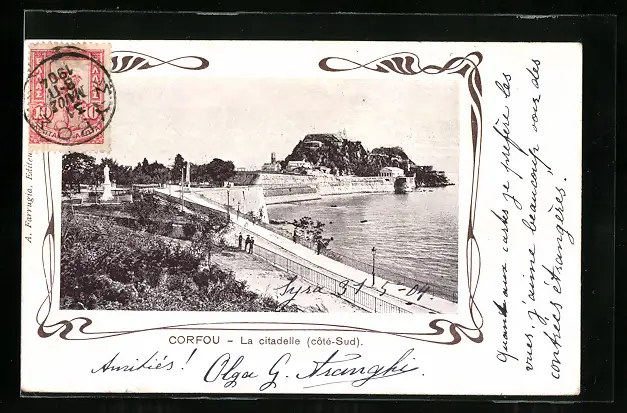 A. Farrugia. Editeur
Syra 31-5-04.
CORFOU – La citadelle (côté-Sud).
Amitiés! Olga G.
Quant aux cartes je préfère les
vues, j'aime beaucoup voir des
contrées étrangères.
1904